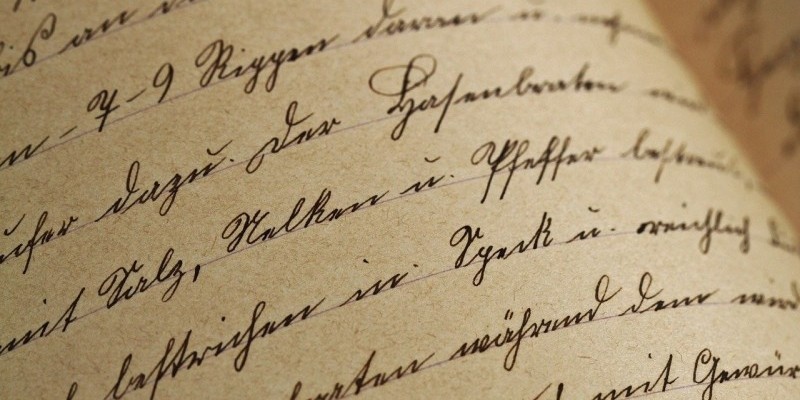 bis an
n - 7-9 Rippen daran u.
dazu. Der Hasenbraten
mit Salz, Nelken u. Pfeffer bestreut
bestrichen in Speck u. reichlich
braten während dem wird
mit Gewür